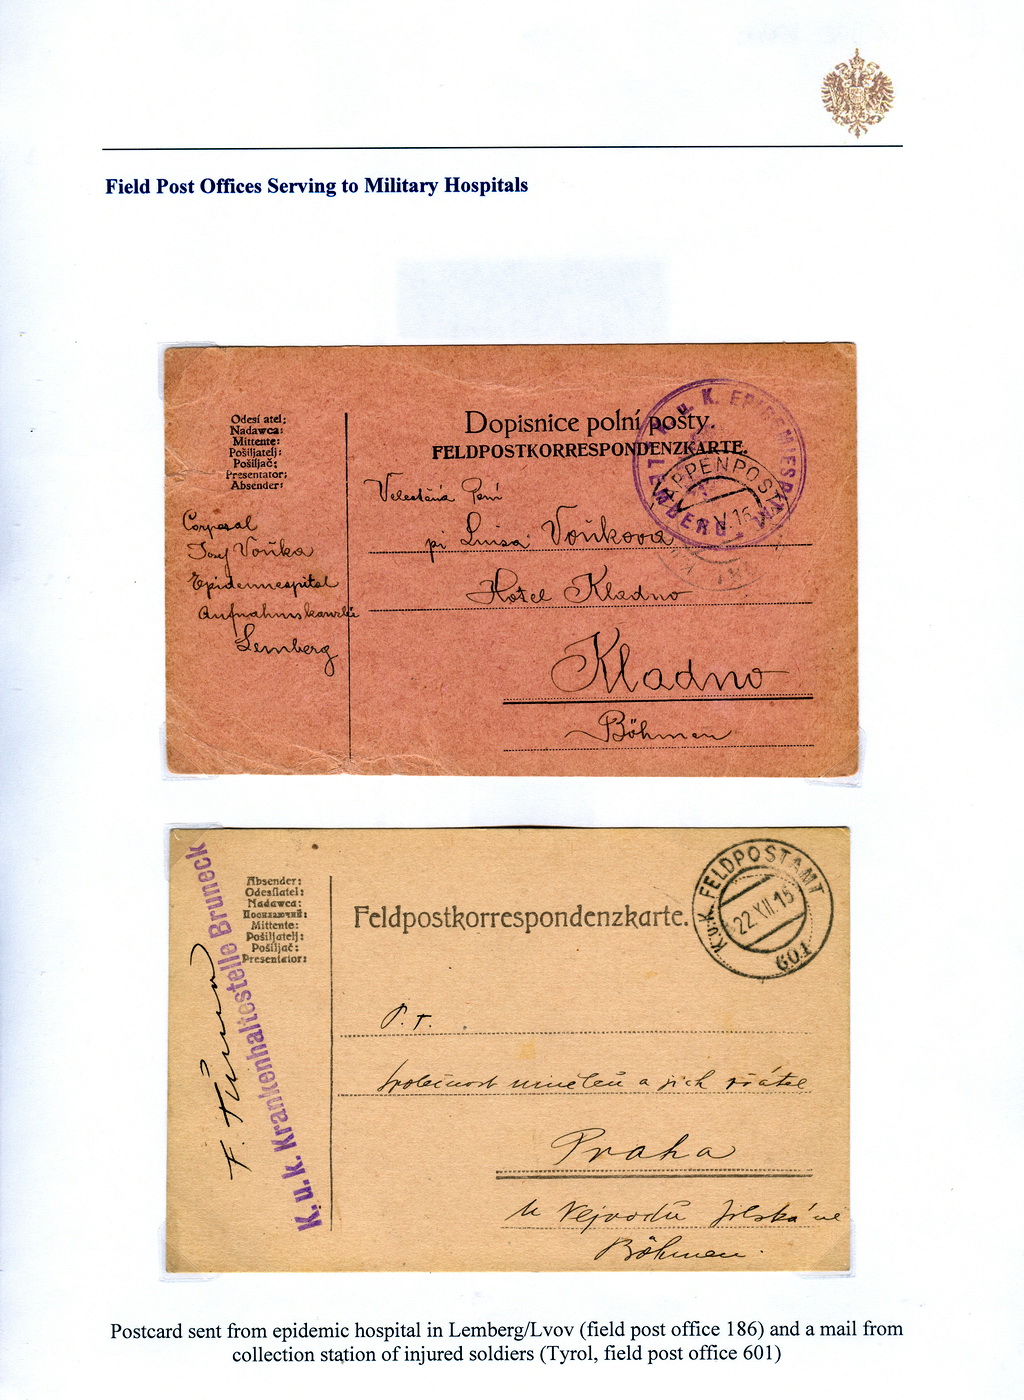 Field Post Offices Serving to Military Hospitals
Odesí atel:
Nadawca:
Mittente:
Pošiljatelj:
Pošiljač:
Presentator:
Absender:
Dopisnice polní pošty.
FELDPOSTKORRESPONDENZKARTE.
u. K. EPIDEMIESPITAL
LEMBERG
ETAPPENPOSTAMT
V.16
Corporal
Josef Voňka
Epidemiespital
Aufnahmskanzlei
Lemberg
Velectěná Paní
pí Luisa Voňkova
Hotel Kladno
Kladno
Böhmen
K. u. k. Krankenhaltestelle Bruneck
Absender:
Odesílatel:
Nadawca:
Посилаючий:
Mittente:
Pošiljatelj:
Pošiljač:
Presentator:
Feldpostkorrespondenzkarte.
K.u.K. FELDPOSTAMT
22.XII.15
601
P. T.
Společnost umělců a jich přátel
Praha
u Vejvodů Jilská ul
Böhmen.
Postcard sent from epidemic hospital in Lemberg/Lvov (field post office 186) and a mail from
collection station of injured soldiers (Tyrol, field post office 601)